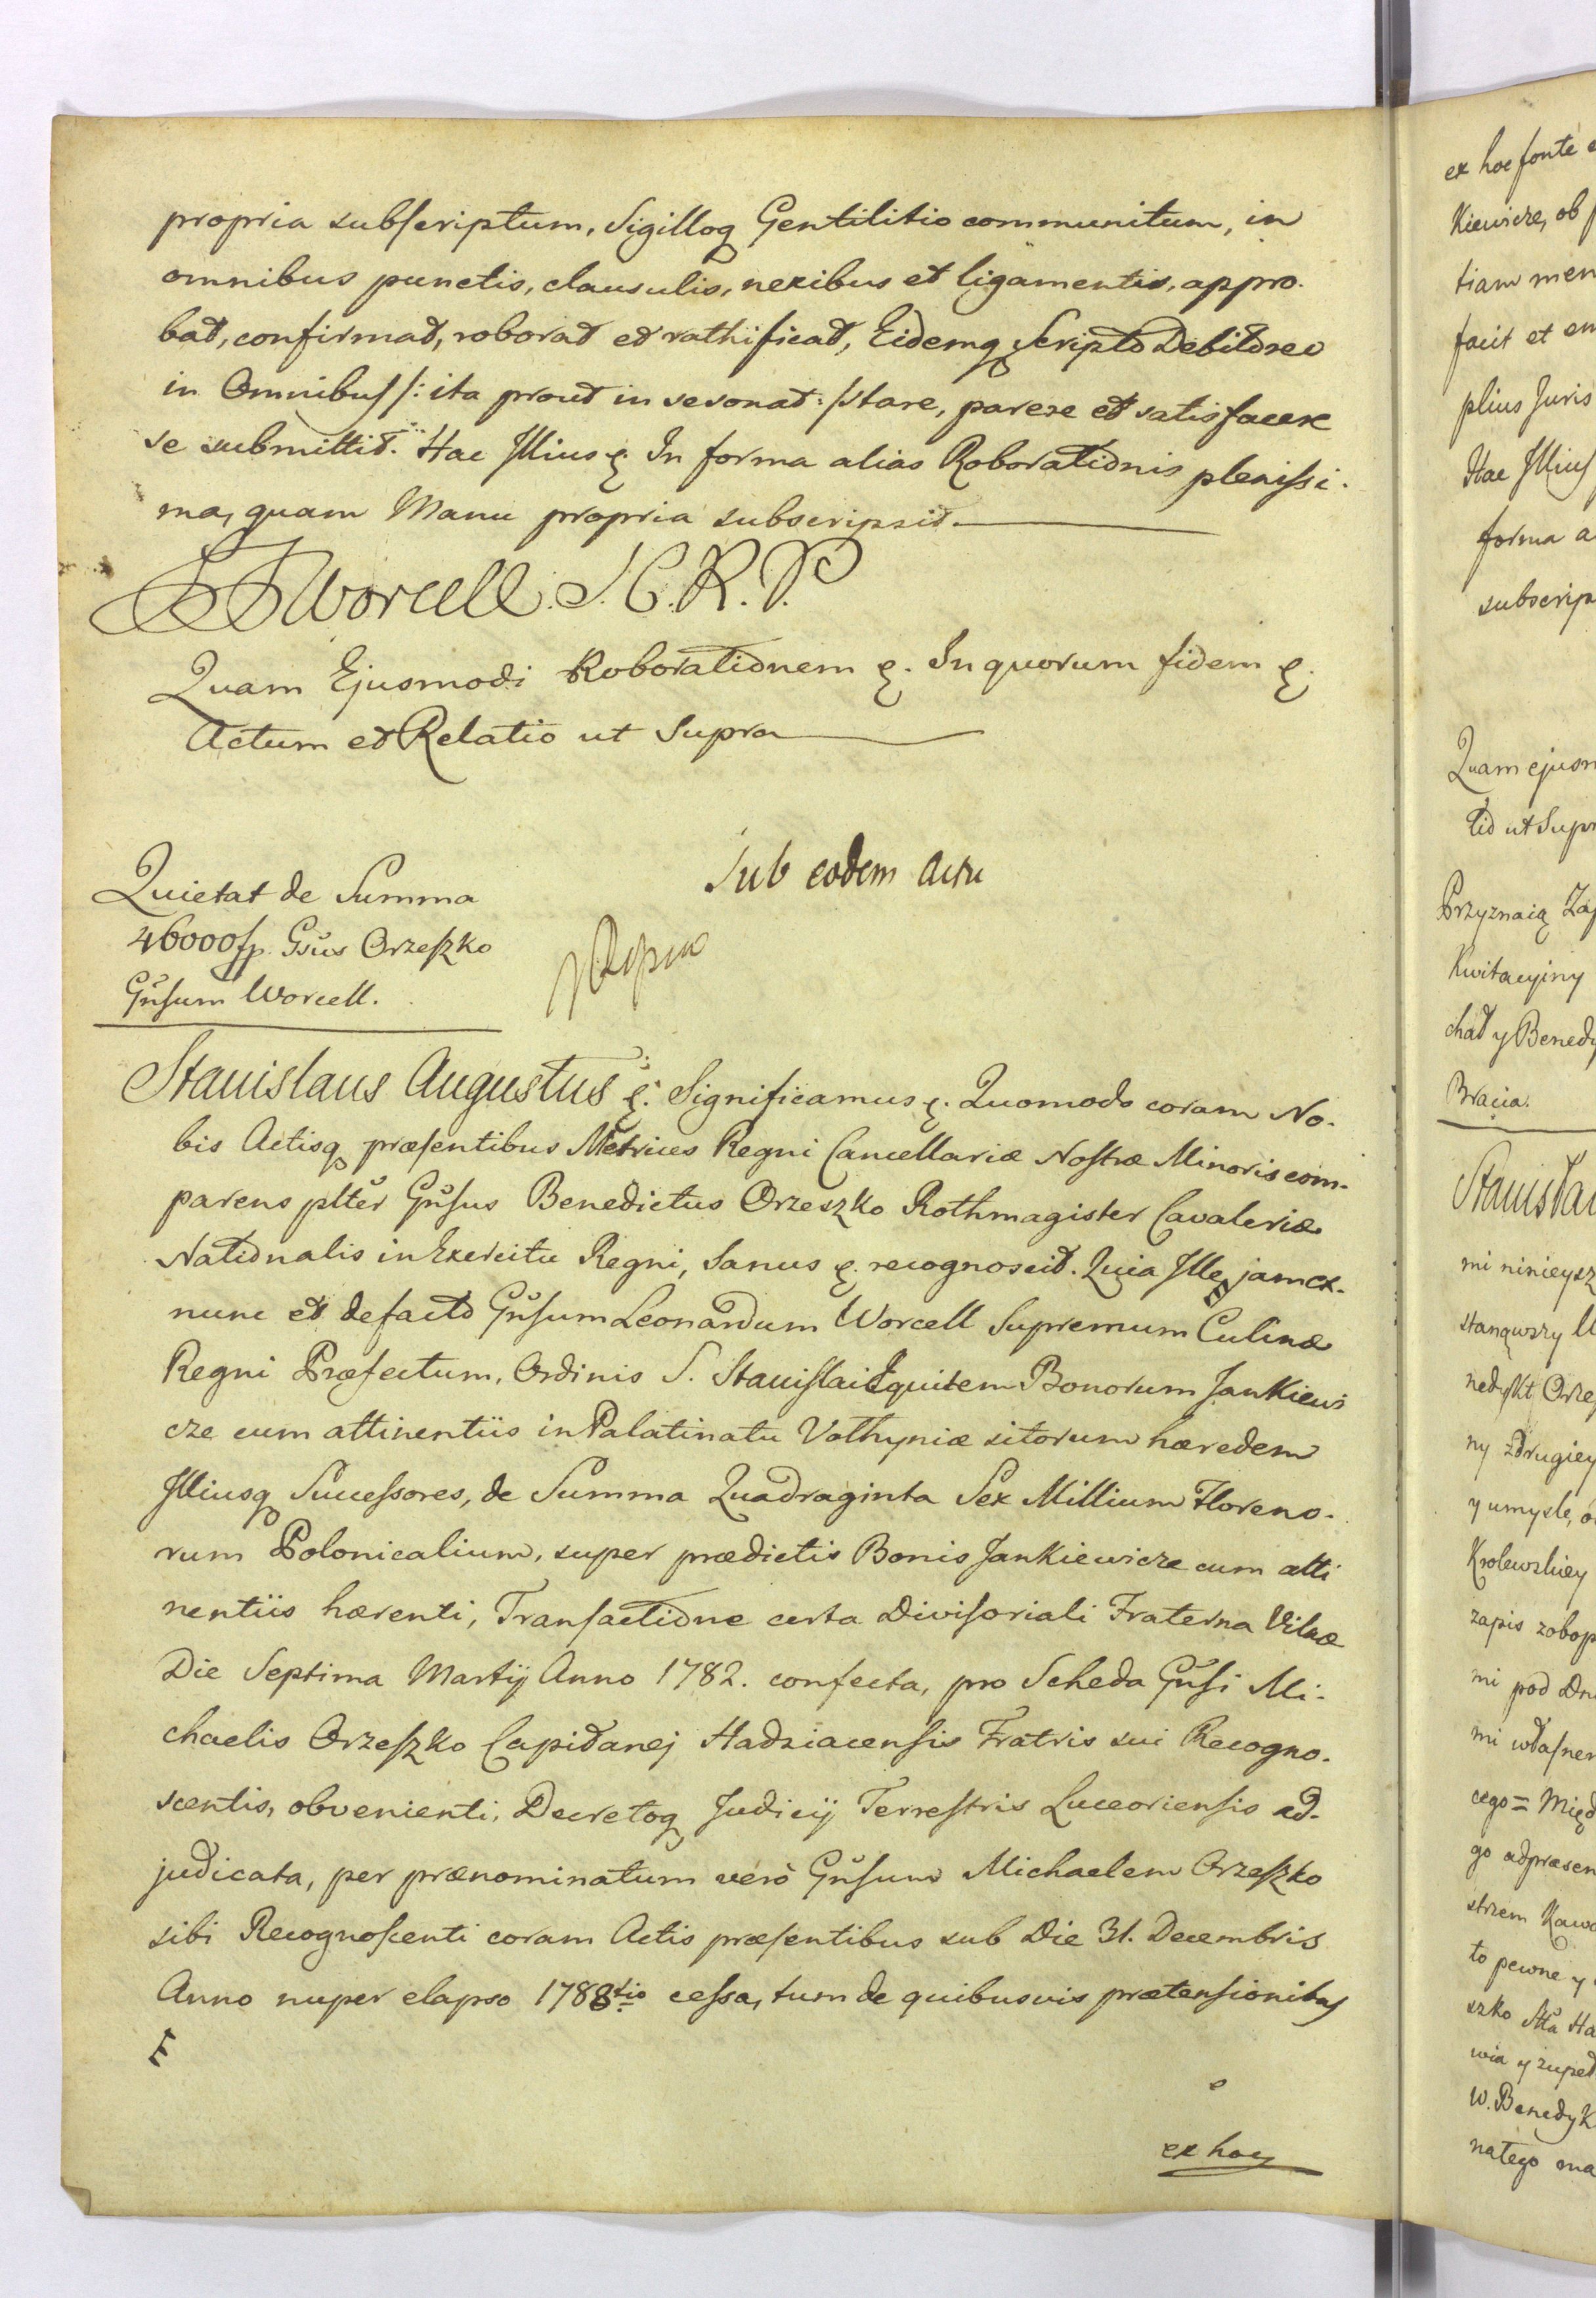 propria subscriptum, Sigilloq Gentilitio communitum, in
omnibus punctis, clausulis, nexibus et ligamentis, appro-
bat, confirmat, roborat et rathificat, Eidemq Scripto Debitoreo
in Omnibus /: ita prout in se sonat :/ stare, parere et satisfacere
se submittit. Hac Illius &. In forma alias Roborationis plenissi-
ma, quam Manu propria subscripsit.
Worcell. S. C. R. P.
Quam Ejusmodi Roborationem &. In quorum fidem &.
Actum et Relatio ut Supra
Sub eodem Actu
Quietat de Summa
46000 fp. Gsus Orzeszko
Gnsum Worcell.
Stanislaus Augustus &. Significamus &. Quomodo coram No-
bis Actisq præsentibus Metrices Regni Cancellariæ Nostræ Minoris com-
parens plter Gnsus Benedictus Orzeszko Rothmagister Cavaleriæ
Nationalis in Exercitu Regni, Sanus &. recognoscit. Quia Ille jam ex-
nunc et de facto Gnsum Leonardum Worcell Supremum Culinæ
Regni Præfectum, Ordinis S. Stanislai Equitem Bonorum Jankiewi
cze cum attinentiis in Palatinatu Volhyniæ sitorum hæredem
Illiusq Successores, de Summa Quadraginta Sex Millium Floreno-
rum Polonicalium, super prædictis Bonis Jankiewicze cum atti
nentiis hærenti, Transactione certa Divisoriali Fraterna Vilnæ
Die Septima Martij Anno 1782. confecta, pro Scheda Gnsi Mi-
chaelis Orzeszko Capitanej Hadziacensis Fratris sui Recogno-
scentis, obvenienti, Decretoq Judicij Terrestris Luceoriensis ad-
judicata, per prænominatum verò Gnsum Michaelem Orzeszko
sibi Recognoscenti coram Actis præsentibus sub Die 31. Decembris
Anno nuper elapso 1788tio cessa, tum de quibusvis prætensionibus
ex hoc
ex hoc fonte
Kiewicze, ob
tiam men
facit et
plius Juris
Hac Illius
forma a
subscrip
Quam ejusm
tio ut Supr
Przyznaią Zap
Kwitacyiny
chał y Benedy
Bracia.
Stanisła
mi ninieysz
stanąwszy
nedykt Orze
ny zdrugiey
y umysle,
Krolewskiey
zapis zobop
mi pod Dn
mi własnem
cego = Międ
go adpræsen
strzem Kawa
to pewne y
szko Stta Ha
wia y zupeł
W. Benedyk
natego ma